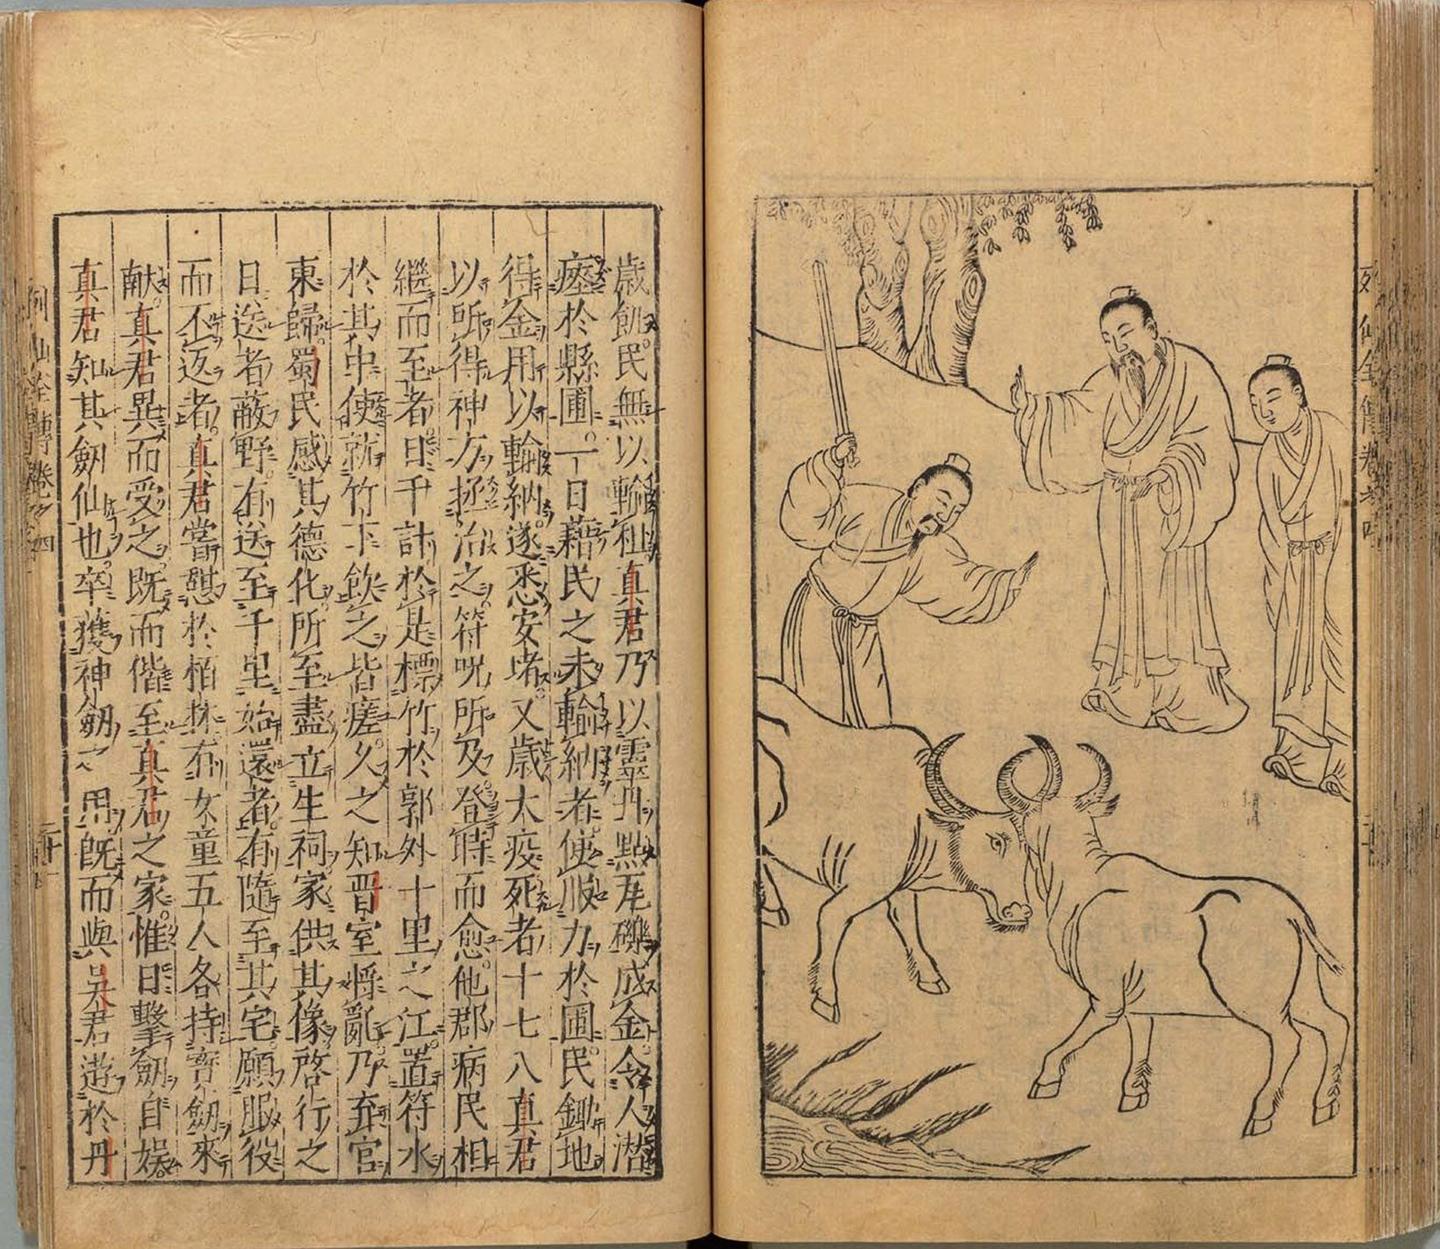 列仙全傳卷之四
歳飢民無以輸租真君乃以靈丹點瓦礫成金令人潛
瘞於縣圃一日藉民之未輸納者使服力於圃民鋤地
得金用以輸納遂悉安堵又歳大疫死者十七八真君
以所得神方拯治之符呪所及登時而愈他郡病民相
繼而至者日千計於是標竹於郭外十里之江置符水
於其中使就竹下飲之皆瘥久之知晋室將亂乃棄官
東歸蜀民感其德化所至盡立生祠家供其像啓行之
日送者蔽野有送至千里始還者有隨至其宅願服役
而不返者真君嘗憇於栢林有女童五人各持寶劔來
献真君異而受之既而偕至真君之家惟日擊劔自娛
真君知其劔仙也卒獲神劔之用既而與吳君遊於丹
列仙全傳卷之四